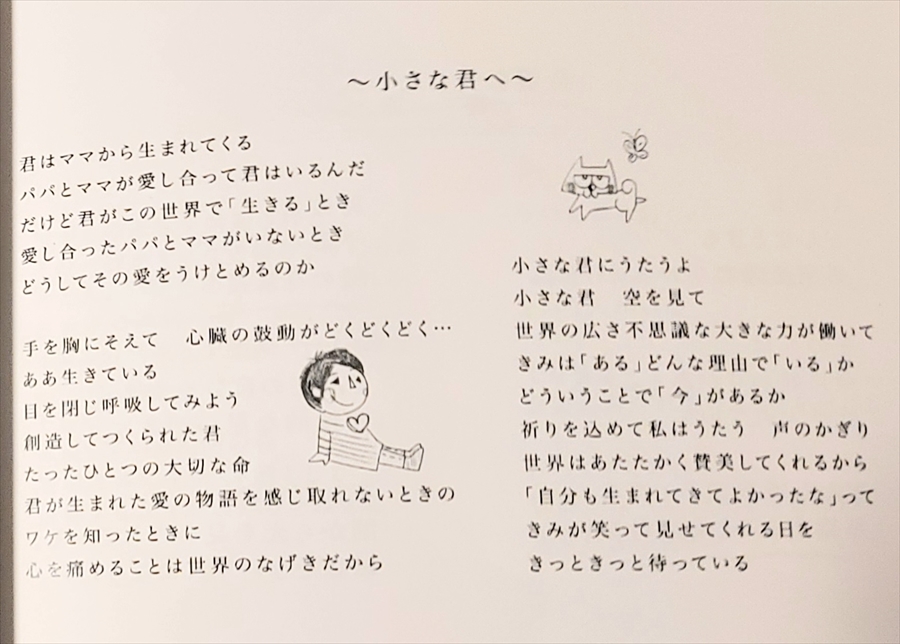 ～小さな君へ～
君はママから生まれてくる
パパとママが愛し合って君はいるんだ
だけど君がこの世界で「生きる」とき
愛し合ったパパとママがいないとき
どうしてその愛をうけとめるのか
手を胸にそえて　心臓の鼓動がどくどくどく…
ああ生きている
目を閉じ呼吸してみよう
創造してつくられた君
たったひとつの大切な命
君が生まれた愛の物語を感じ取れないときの
ワケを知ったときに
心を痛めることは世界のなげきだから
小さな君にうたうよ
小さな君　空を見て
世界の広さ不思議な大きな力が働いて
きみは「ある」どんな理由で「いる」か
どういうことで「今」があるか
祈りを込めて私はうたう　声のかぎり
世界はあたたかく賛美してくれるから
「自分も生まれてきてよかったな」って
きみが笑って見せてくれる日を
きっときっと待っている